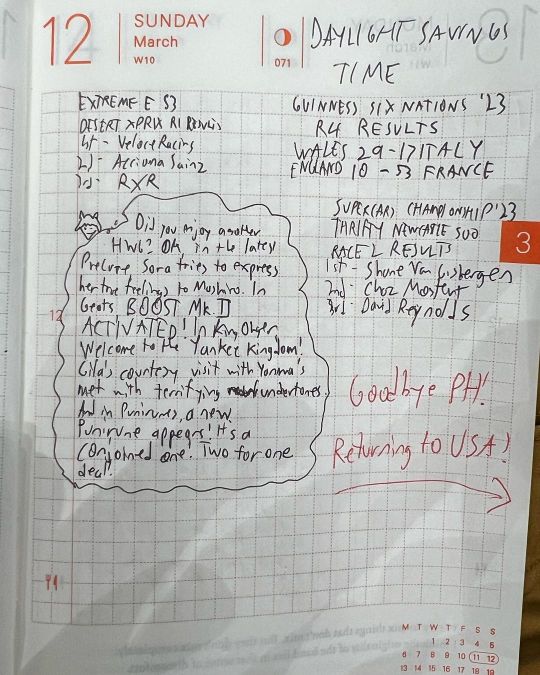 12
SUNDAY
March
W10
071
DAYLIGHT SAVINGS
TIME
EXTREME E S3
DESERT XPRIX R1 Results
1st - Veloce Racing
2nd - Acciona Sainz
3rd - RXR
GUINNESS SIX NATIONS '23
R4 RESULTS
WALES 29-17 ITALY
ENGLAND 10 - 53 FRANCE
SUPERCARS CHAMPIONSHIP '23
THRIFTY NEWCASTLE 500
RACE 2 RESULTS
1st - Shane Van Gisbergen
2nd - Chaz Mostert
3rd - David Reynolds
3
Did you enjoy another
HWG? OK in the latest
Precure, Sora tries to express
her true feelings to Mashiro. In
Geats BOOST MK. II
ACTIVATED! In King Ohger
Welcome to the Yanker Kingdom!
Gila's courtesy visit with Yanma's
met with terrifying undertones.
And in Punirunes, a new
Punirune appears! It's a
conjoined one. Two for one
deal!
12
Goodbye PH!
Returning to USA!
M T W T F S S
1 2 3 4 5
6 7 8 9 10 11 12
13 14 15 16 17 18 19